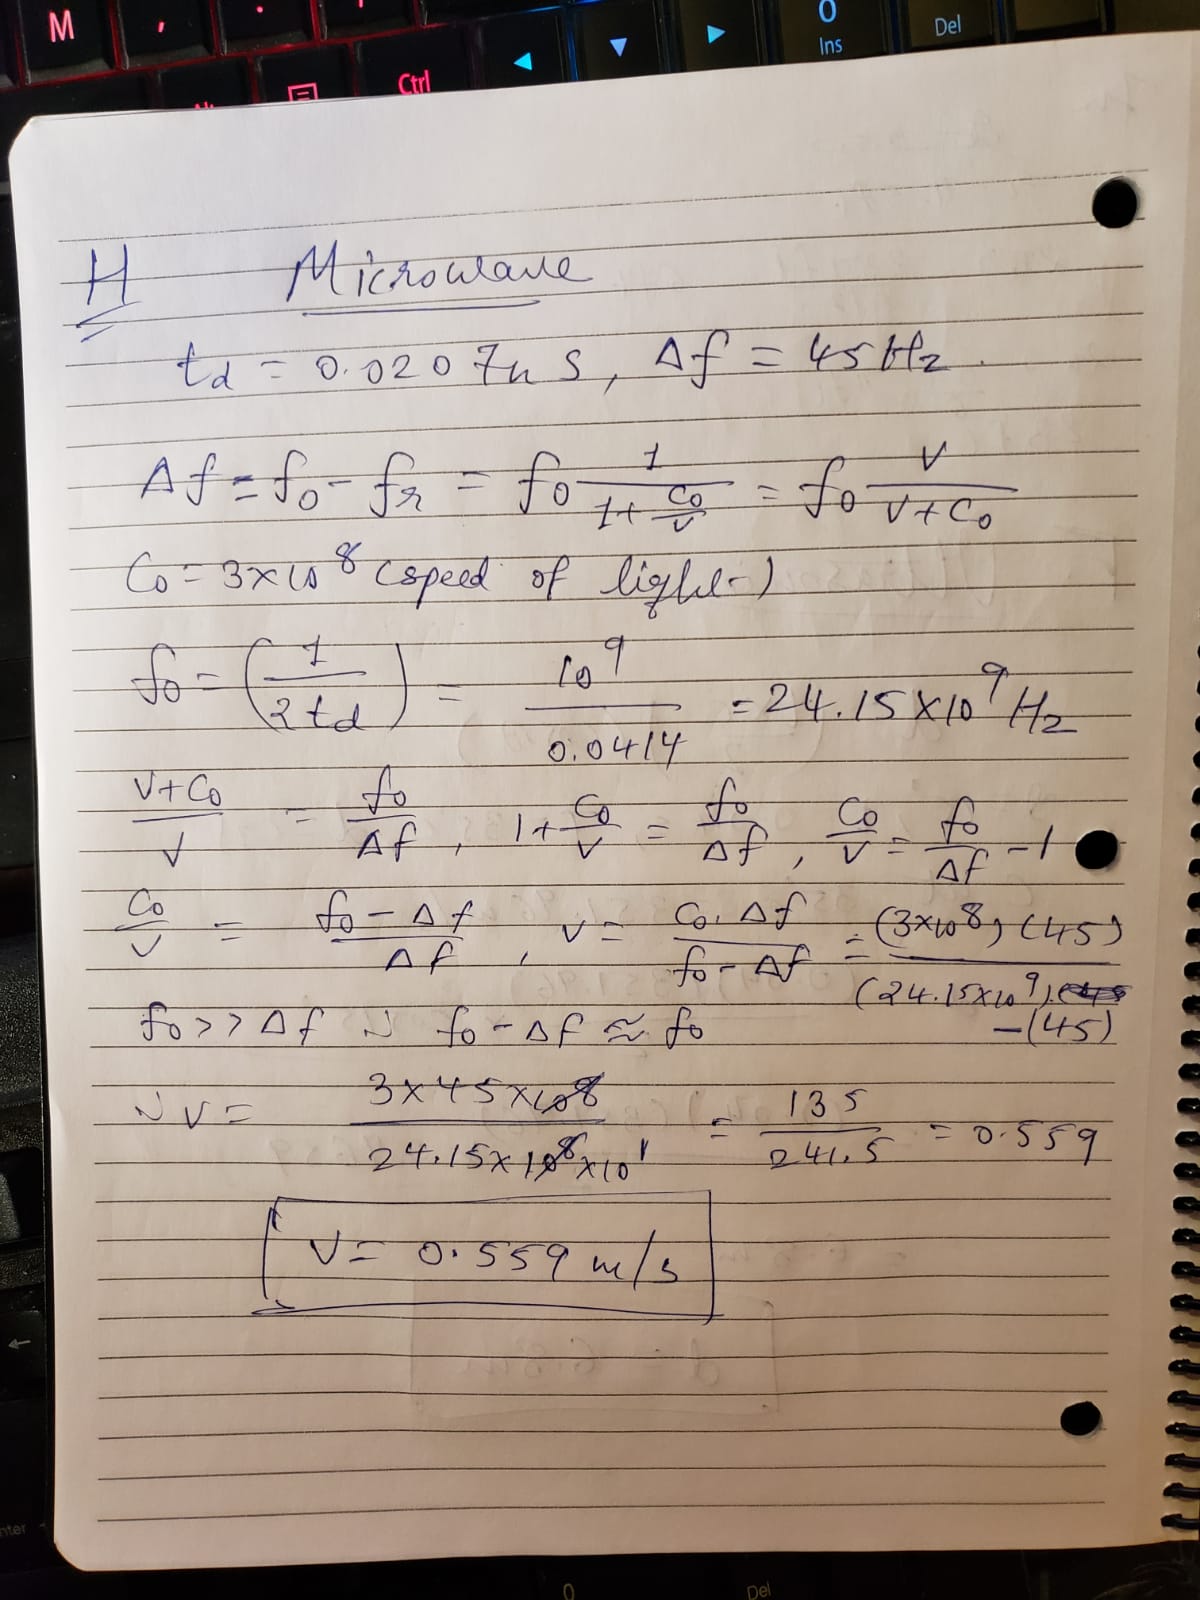 M , .
Ctrl
0
Ins
Del
H Microwave
td = 0.0207n s, Δf = 45Hz.
Δf = fo - fr = fo 1/(1+ Co/v) = fo v/(v+Co)
Co = 3x10^8 (speed of light)
fo = (1/(2td)) = 10^9/0.0414 = 24.15x10^9 Hz
(v+Co)/v = fo/Δf, 1+Co/v = fo/Δf, Co/v = fo/Δf - 1
Co/v = (fo - Δf)/Δf, v = Co.Δf/(fo - Δf) = (3x10^8)(45)/((24.15x10^9) -(45))
fo >> Δf ∴ fo - Δf ≈ fo
∴ v = 3x45x10^8/(24.15x10^8x10^1) = 135/241.5 = 0.559
v = 0.559 m/s
0
Del